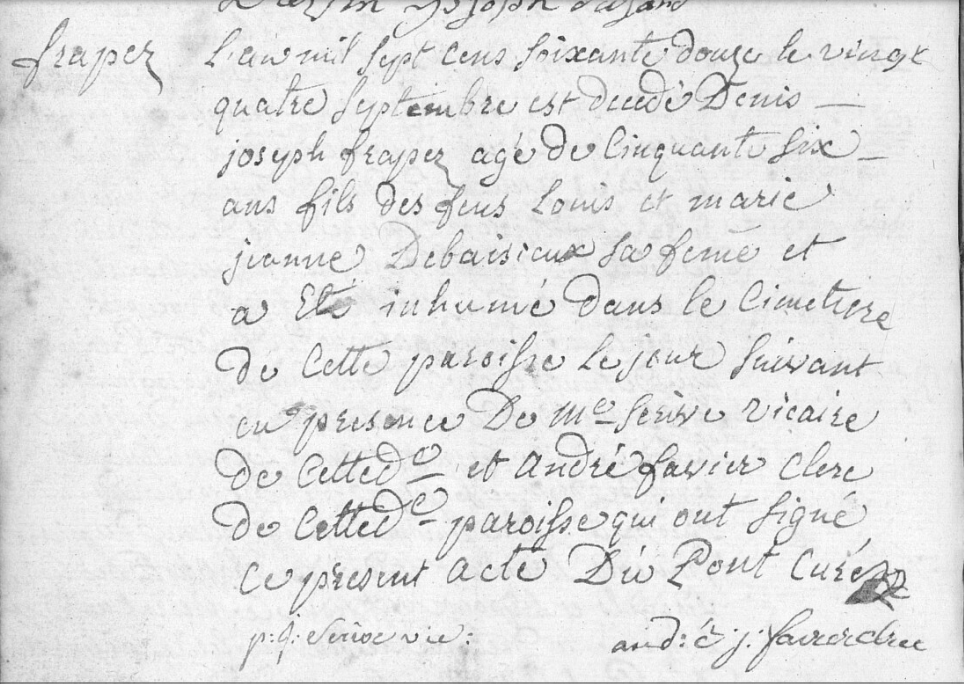 joseph
frapez
L'an mil sept cens soixante douze le vingt
quatre septembre est decedé Denis
joseph frapez agé de Cinquante six
ans fils des feus Louis et marie
jeanne Debaisieux sa feme et
a Eté inhumé dans le Cimetiere
de Cette paroisse le jour suivant
en presence De me Serive vicaire
de Cetted e et André favier Clerc
de Cetted e paroisse qui ont signé
Ce present acte Du Pont Curé
p: j: Serive vic:
andré j: favier clerc